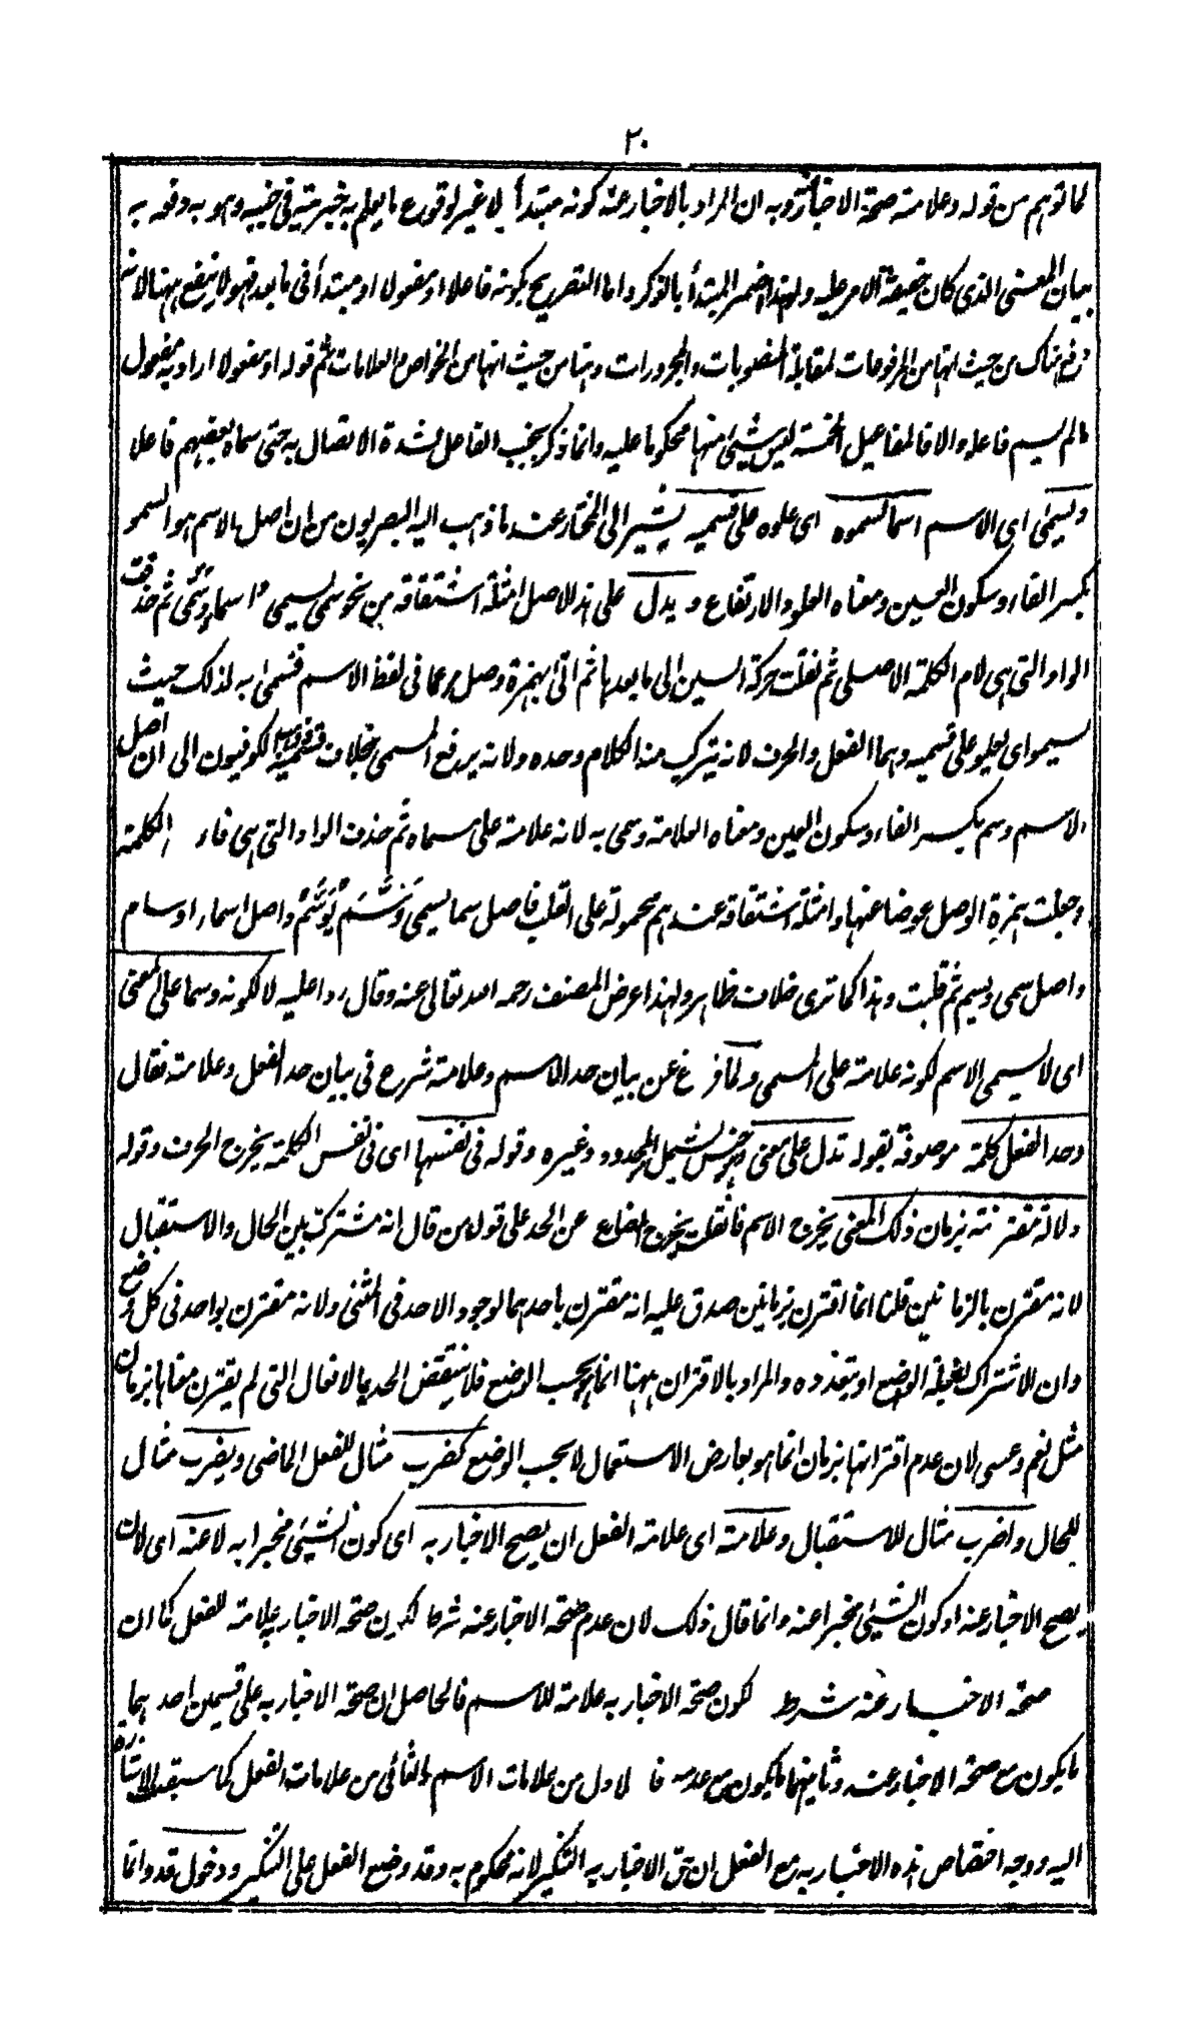 ٢٠
لما توهم من قوله وعلامته صحة الاخبار عنه وبه ان المراد بالاخبار عنه كونه مبتدأ لا غير لوقوع ما يعلم به خبريته فى جنبه وهو به دفعه به
بيان المعنى الذى كان حقيقة الامر عليه ولهذا اضمر المبتدأ بالذكر واما التصريح بكونه فاعلا او مفعولا او مبتدأ فى ما بعد فهو لا ينفع ههنا لانه
وقع هناك من حيث انها من المرفوعات لمقابلة المنصوبات والمجرورات وهنا من حيث انها من الخواص والعلامات ثم قوله او مفعولا اراد به مفعول
ما لم يسم فاعله والا فالمفاعيل الخمسة ليس شيئ منها محكوما عليه وانما ذكر بجنب الفاعل لشدة الاتصال به حتى سماه بعضهم فاعلا
ويسمى اى الاسم اسما لسموه اى علوه على قسميه يشير الى المختار عنده ما ذهب اليه البصريون من ان اصل الاسم هو السمو
بكسر الفاء وسكون العين ومعناه العلو والارتفاع ويدل على هذا الاصل امثلة اشتقاقه من نحو سمى يسمى و اسماء وسُمَى ثم حذفت
الواو التى هى لام الكلمة الاصلى ثم نقلت حركة السين الى ما بعدها ثم اتى بهمزة وصل مرعا فى لفظ الاسم فسمى به لذلك حيث
يسمو اى يعلو على قسميه وهما الفعل والحرف لانه يتركب منه الكلام وحده ولانه يرفع المسمى بخلاف قسميه وذهب الكوفيون الى ان اصل
الاسم وسم بكسر الفاء وسكون العين ومعناه العلامة وسمى به لانه علامة على مسماه ثم حذف الواو التى هى فاء الكلمة
وجعلت همزة الوصل عوضا عنها وامثلة اشتقاقه عندهم محمولة على القلب فاصل سما يسمى وَسَمَ يُوسَمُ واصل اسماء اوسام
واصل سمى وسيم ثم قلبت وهذا كما ترى خلاف ظاهر ولهذا اعرض المصنف رحمه الله تعالى عنه وقال ردا عليه لا لكونه وسما على المعنى
اى لا يسمى الاسم لكونه علامة على المسمى ولما فرغ عن بيان حد الاسم وعلامته شرع فى بيان حد الفعل وعلامته فقال
وحد الفعل كلمة موصوفة بقوله تدل على معنى هو جنس يشمل المحدود وغيره وقوله فى نفسها اى فى نفس الكلمة يخرج الحرف وقوله
دلالة مقترنة بزمان ذلك المعنى يخرج الاسم فان قلت يخرج المضارع عن الحد على قول من قال انه مشترك بين الحال والاستقبال
لانه مقترن بالزمانين قلنا انما اقترن بزمانين صدق عليه انه مقترن باحدهما لوجود الاحد فى المثنى ولانه مقترن بواحد فى كل وضع
وان الاشتراك لغفلة الواضع او بتعدده والمراد بالاقتران ههنا انما هو بحسب الوضع فلا ينتقض الحد بالافعال التى لم يقترن معناها بزمان
مثل نعم وعسى لان عدم اقترانها بزمان انما هو بعارض الاستعمال لا بحسب الوضع كضرب مثال للفعل الماضى ويضرب مثال
للحال واضرب مثال للاستقبال وعلامته اى علامة الفعل ان يصح الاخبار به اى كون الشيئ مخبرا به لا عنه اى لا ان
يصح الاخبار عنه او كون الشيئ مخبرا عنه وانما قال ذلك لان عدم صحة الاخبار عنه شرط لكون صحة الاخبار به علامة للفعل كما ان
صحة الاخبار عنه شرط لكون صحة الاخبار به علامة للاسم فالحاصل ان صحة الاخبار به على قسمين احدهما
ما يكون مع صحة الاخبار عنه وثانيهما ما يكون مع عدمه فالاول من علامات الاسم والثانى من علامات الفعل كما سبقت الاشارة
اليه ووجه اختصاص هذه الاخبار به مع الفعل ان حق الاخبار به التنكير لانه محكوم به وقد وضع الفعل على التنكير ودخول قد وانما